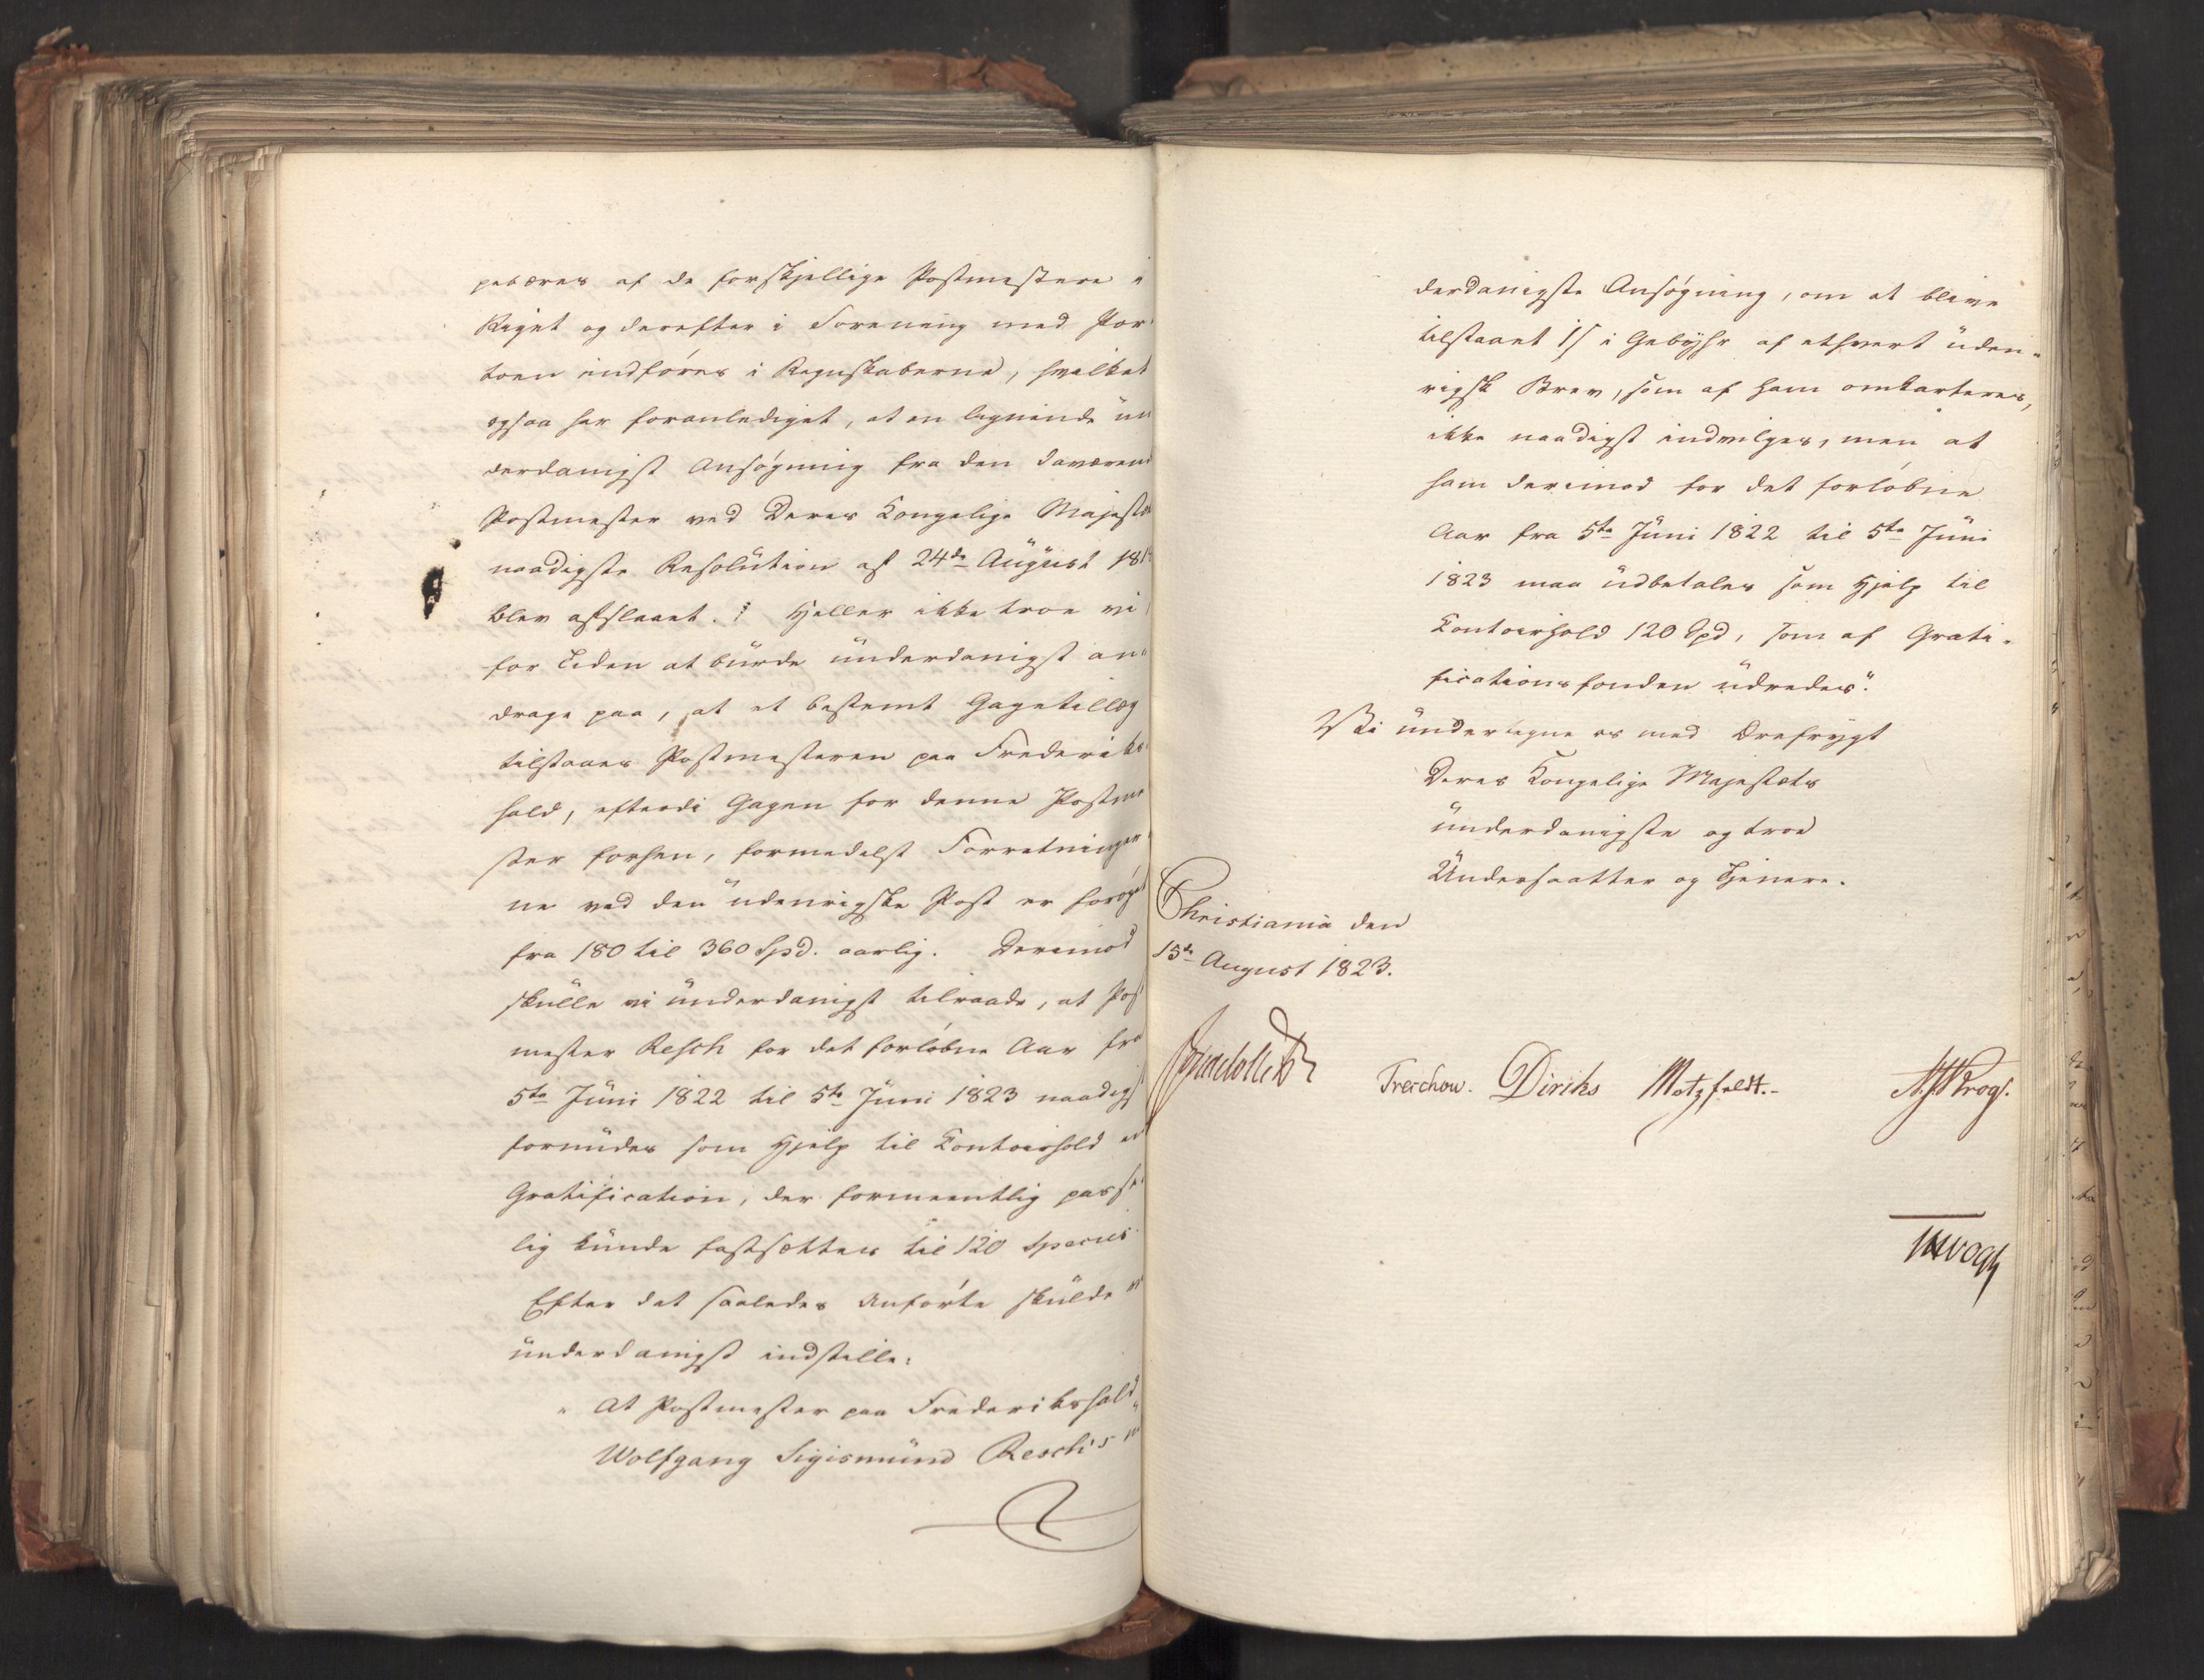 pebæres af de forskjellige Postmestere i
Riget og derefter i Forening med Por-
toen indføres i Regnskaberne, hvilket
ogsaa har foranlediget, at en lignende un
derdanigst Ansøgning fra den daværend
Postmester ved Deres Kongelige Majestæ
naadigste Resolution af 24de August 181
blev afslaaet. Heller ikke troe vi
for Tiden at burde underdanigst an-
drage paa, at et bestemt Gagetillæg
tilstaaes Postmesteren paa Frederiks-
hald, efterdi Gagen for denne Postme
ster forhen, formedelst Forretninger-
ne ved den udenrigske Post er forøget
fra 180 til 360 Spd. aarlig. Derimod
skulle vi underdanigst tilraade, at Post
mester Resch for det forløbne Aar fra
5te Juni 1822 til 5te Juni 1823 naadigst
forundes som Hjelp til Contoirhold en
Gratification, der formeentlig passe-
lig kunde fastsættes til 120 Species.
Efter det saaledes Anførte skulde vi
underdanigst indstille:
" At Postmester paa Frederikshald
Wolfgang Sigismund Resch's un
derdanigste Ansøgning, om at blive
tilstaaet 1 s i Gebyhr af ethvert uden-
rigsk Brev, som af ham omkarteres,
ikke naadigst indvilges, men at
ham derimod for det forløbne
Aar fra 5te Juni 1822 til 5te Juni
1823 maa udbetales som Hjelp til
Contoirhold 120 Spd, som af Grati-
ficationsfonden udredes".
Vi undertegne os med Ærefrygt
Deres Kongelige Majestæts
underdanigste og troe
Undersaatter og Tjenere.
Christiania den
15de August 1823.
Treschow. Diriks Motzfeldt.- Krog.
Vogt